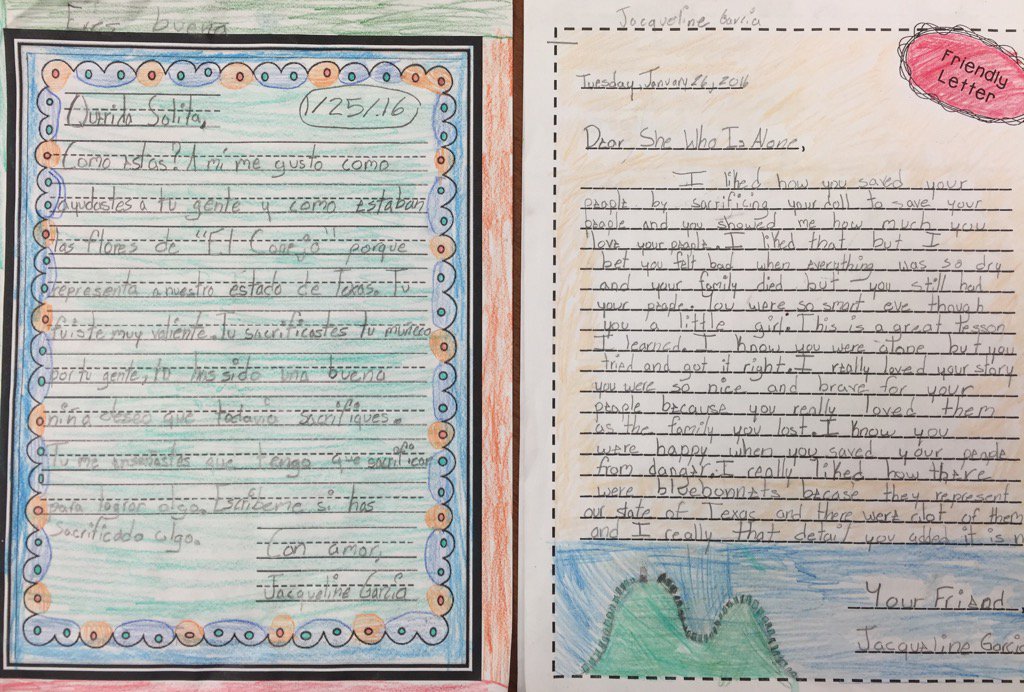 Eres buena
Querida Solita,
1/25/16
Como estas? A mi me gusto como
ayudastes a tu gente y como estaban
las flores de "El Conejo" porque
representa a nuestro estado de Texas. Tu
fuiste muy valiente. Tu sacrificastes tu muñeco
por tu gente, tu has sido una buena
niña deseo que todavio sacrifiques.
Tu me enseñastes que tengo que sacrificar
para lograr algo. Escribeme si has
sacrificado algo.
Con amor,
Jacqueline Garcia
Jacqueline Garcia
Friendly
Letter
Tuesday, January 26, 2016
Dear She Who Is Alone,
I liked how you saved your
people by sacrificing your doll to save your
people and you showed me how much you
love your people. I liked that but I
bet you felt bad when everything was so dry
and your family died but you still had
your people. You were so smart eve though
you a little girl. This is a great lesson
I learned. I know you were alone but you
tried and got it right. I really loved your story
you were so nice and brave for your
people because you really loved them
as the family you lost. I know you
were happy when you saved your people
from danger. I really liked how there
were bluebonnets becase they represent
our state of Texas and there were alot of them
and I really that detail you added it is
Your Friend,
Jacqueline Garcia